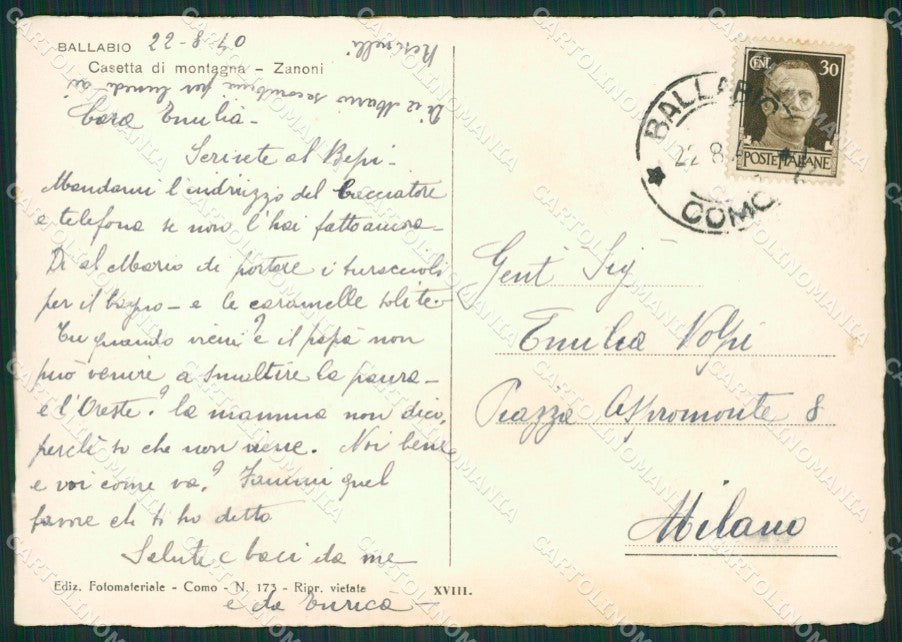 BALLABIO 22-8-40
Casetta di montagna - Zanoni
Cara Emilia -
Scrivete al Bepi -
Mandami l'indirizzo del Cacciatore
e telefona se non l'hai fatto ancora -
Di al Mario di portare i turaccioli
per il bagno - e le caramelle solite -
Tu quando vieni? e il papà non
può venire a smaltire la paura -
e l'Oreste? la mamma non dico,
perchè so che non viene. Noi bene
e voi come va? Fammi quel
favore che ti ho detto
Saluti e baci da me
e da Enrica -
Ediz. Fotomateriale - Como - N. 173 - Ripr. vietata
XVIII.
Gent Sig
Emilia Volpi
Piazza Aspromonte 8
Milano
BALLABIO
22 8
COMO
CENT. 30
POSTE ITALIANE
CARTOLINOMANIA